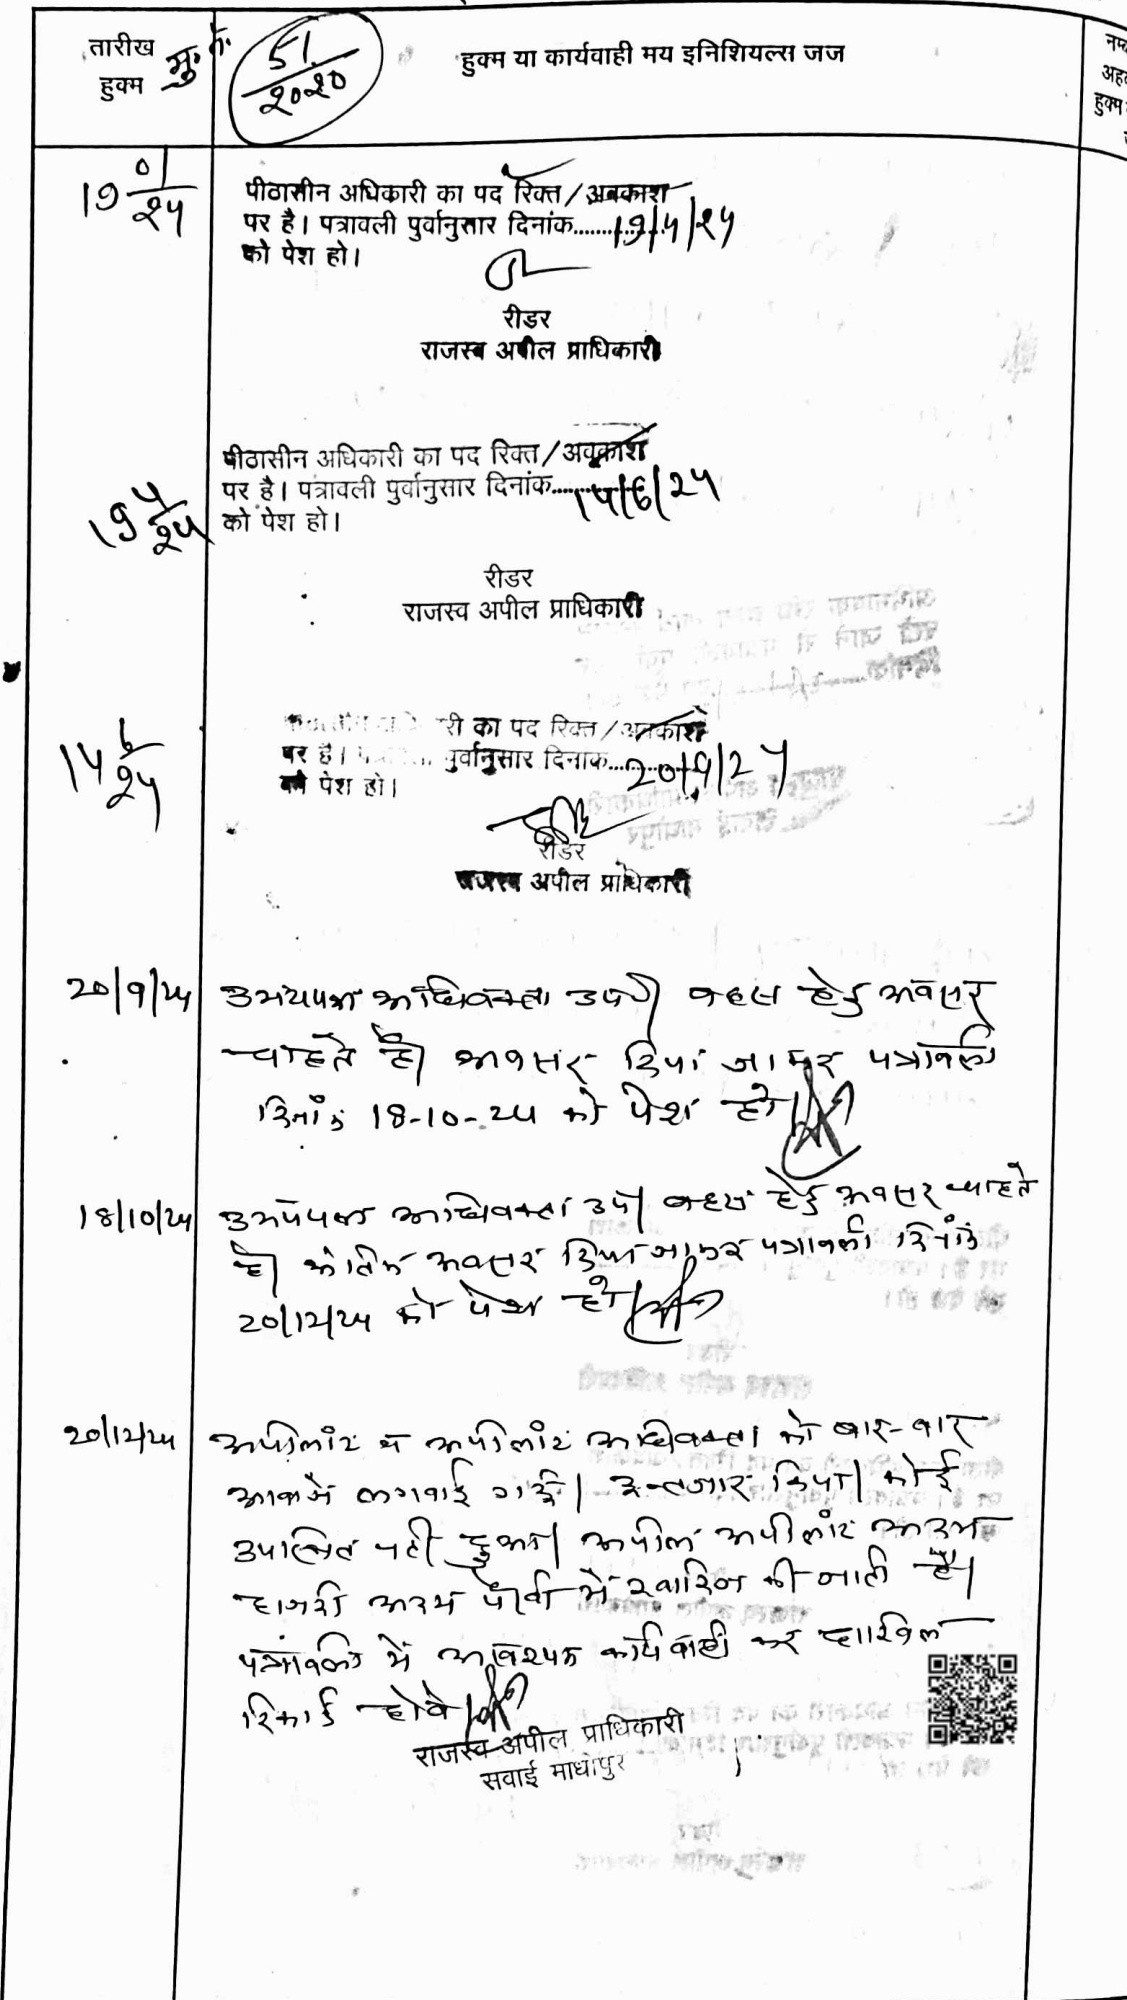 तारीख
हुक्म
मु.नं.
51
2020
हुक्म या कार्यवाही मय इनिशियल्स जज
हुक्म
19 01/24
पीठासीन अधिकारी का पद रिक्त/अवकाश
पर है। पत्रावली पुर्वानुसार दिनांक.......19/4/24
को पेश हो।
रीडर
राजस्व अपील प्राधिकारी
पीठासीन अधिकारी का पद रिक्त/अवकाश
19 4/24
पर है। पत्रावली पुर्वानुसार दिनांक.......14/6/24
को पेश हो।
रीडर
राजस्व अपील प्राधिकारी
14 6/24
री का पद रिक्त/अवकाश
पर है। पुर्वानुसार दिनांक.......20/9/24
को पेश हो।
रीडर
राजस्व अपील प्राधिकारी
20/9/24 उभयपक्ष अधिवक्ता उप०। बहस हेतु अवसर
चाहते है। अवसर दिया जाकर पत्रावली
दिनांक 18-10-24 को पेश हो।
18/10/24 उभयपक्ष अधिवक्ता उप०। बहस हेतु अवसर चाहते
है। अंतिम अवसर दिया जाकर पत्रावली दिनांक
20/12/24 को पेश हो।
20/12/24 अपीलांट व अपीलांट अधिवक्ता को बार-बार
आवाजें लगवाई गई। इन्तजार किया। कोई
उपस्थित नही हुआ। अपील अपीलांट अदम
हाजरी अदम पैरवी में खारिज की जाती है।
पत्रावली में आवश्यक कार्यवाही कर दाखिल
रिकार्ड होवे।
राजस्व अपील प्राधिकारी
सवाई माधोपुर